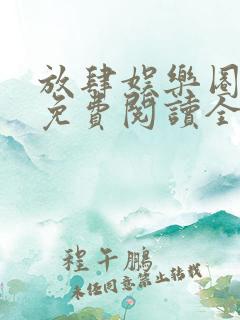 放肆娛樂圈
免費閱讀全
程午鵬
未經同意禁止轉載